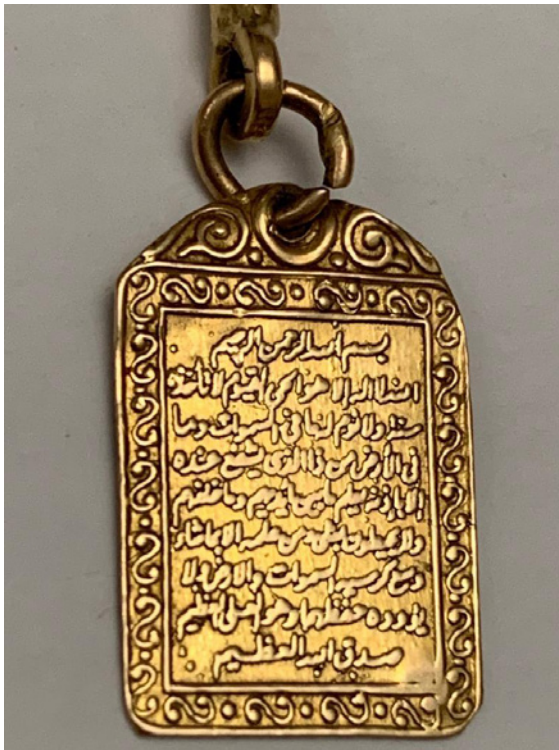 بسم الله الرحمن الرحيم
الله لا اله الا هو الحي القيوم لا تاخذه
سنة ولا نوم له ما في السموات وما
في الأرض من ذا الذي يشفع عنده
الا باذنه يعلم ما بين ايديهم وما خلفهم
ولا يحيطون بشيء من علمه الا بما شاء
وسع كرسيه السموات والارض ولا
يؤوده حفظهما وهو العلي العظيم
صدق الله العظيم